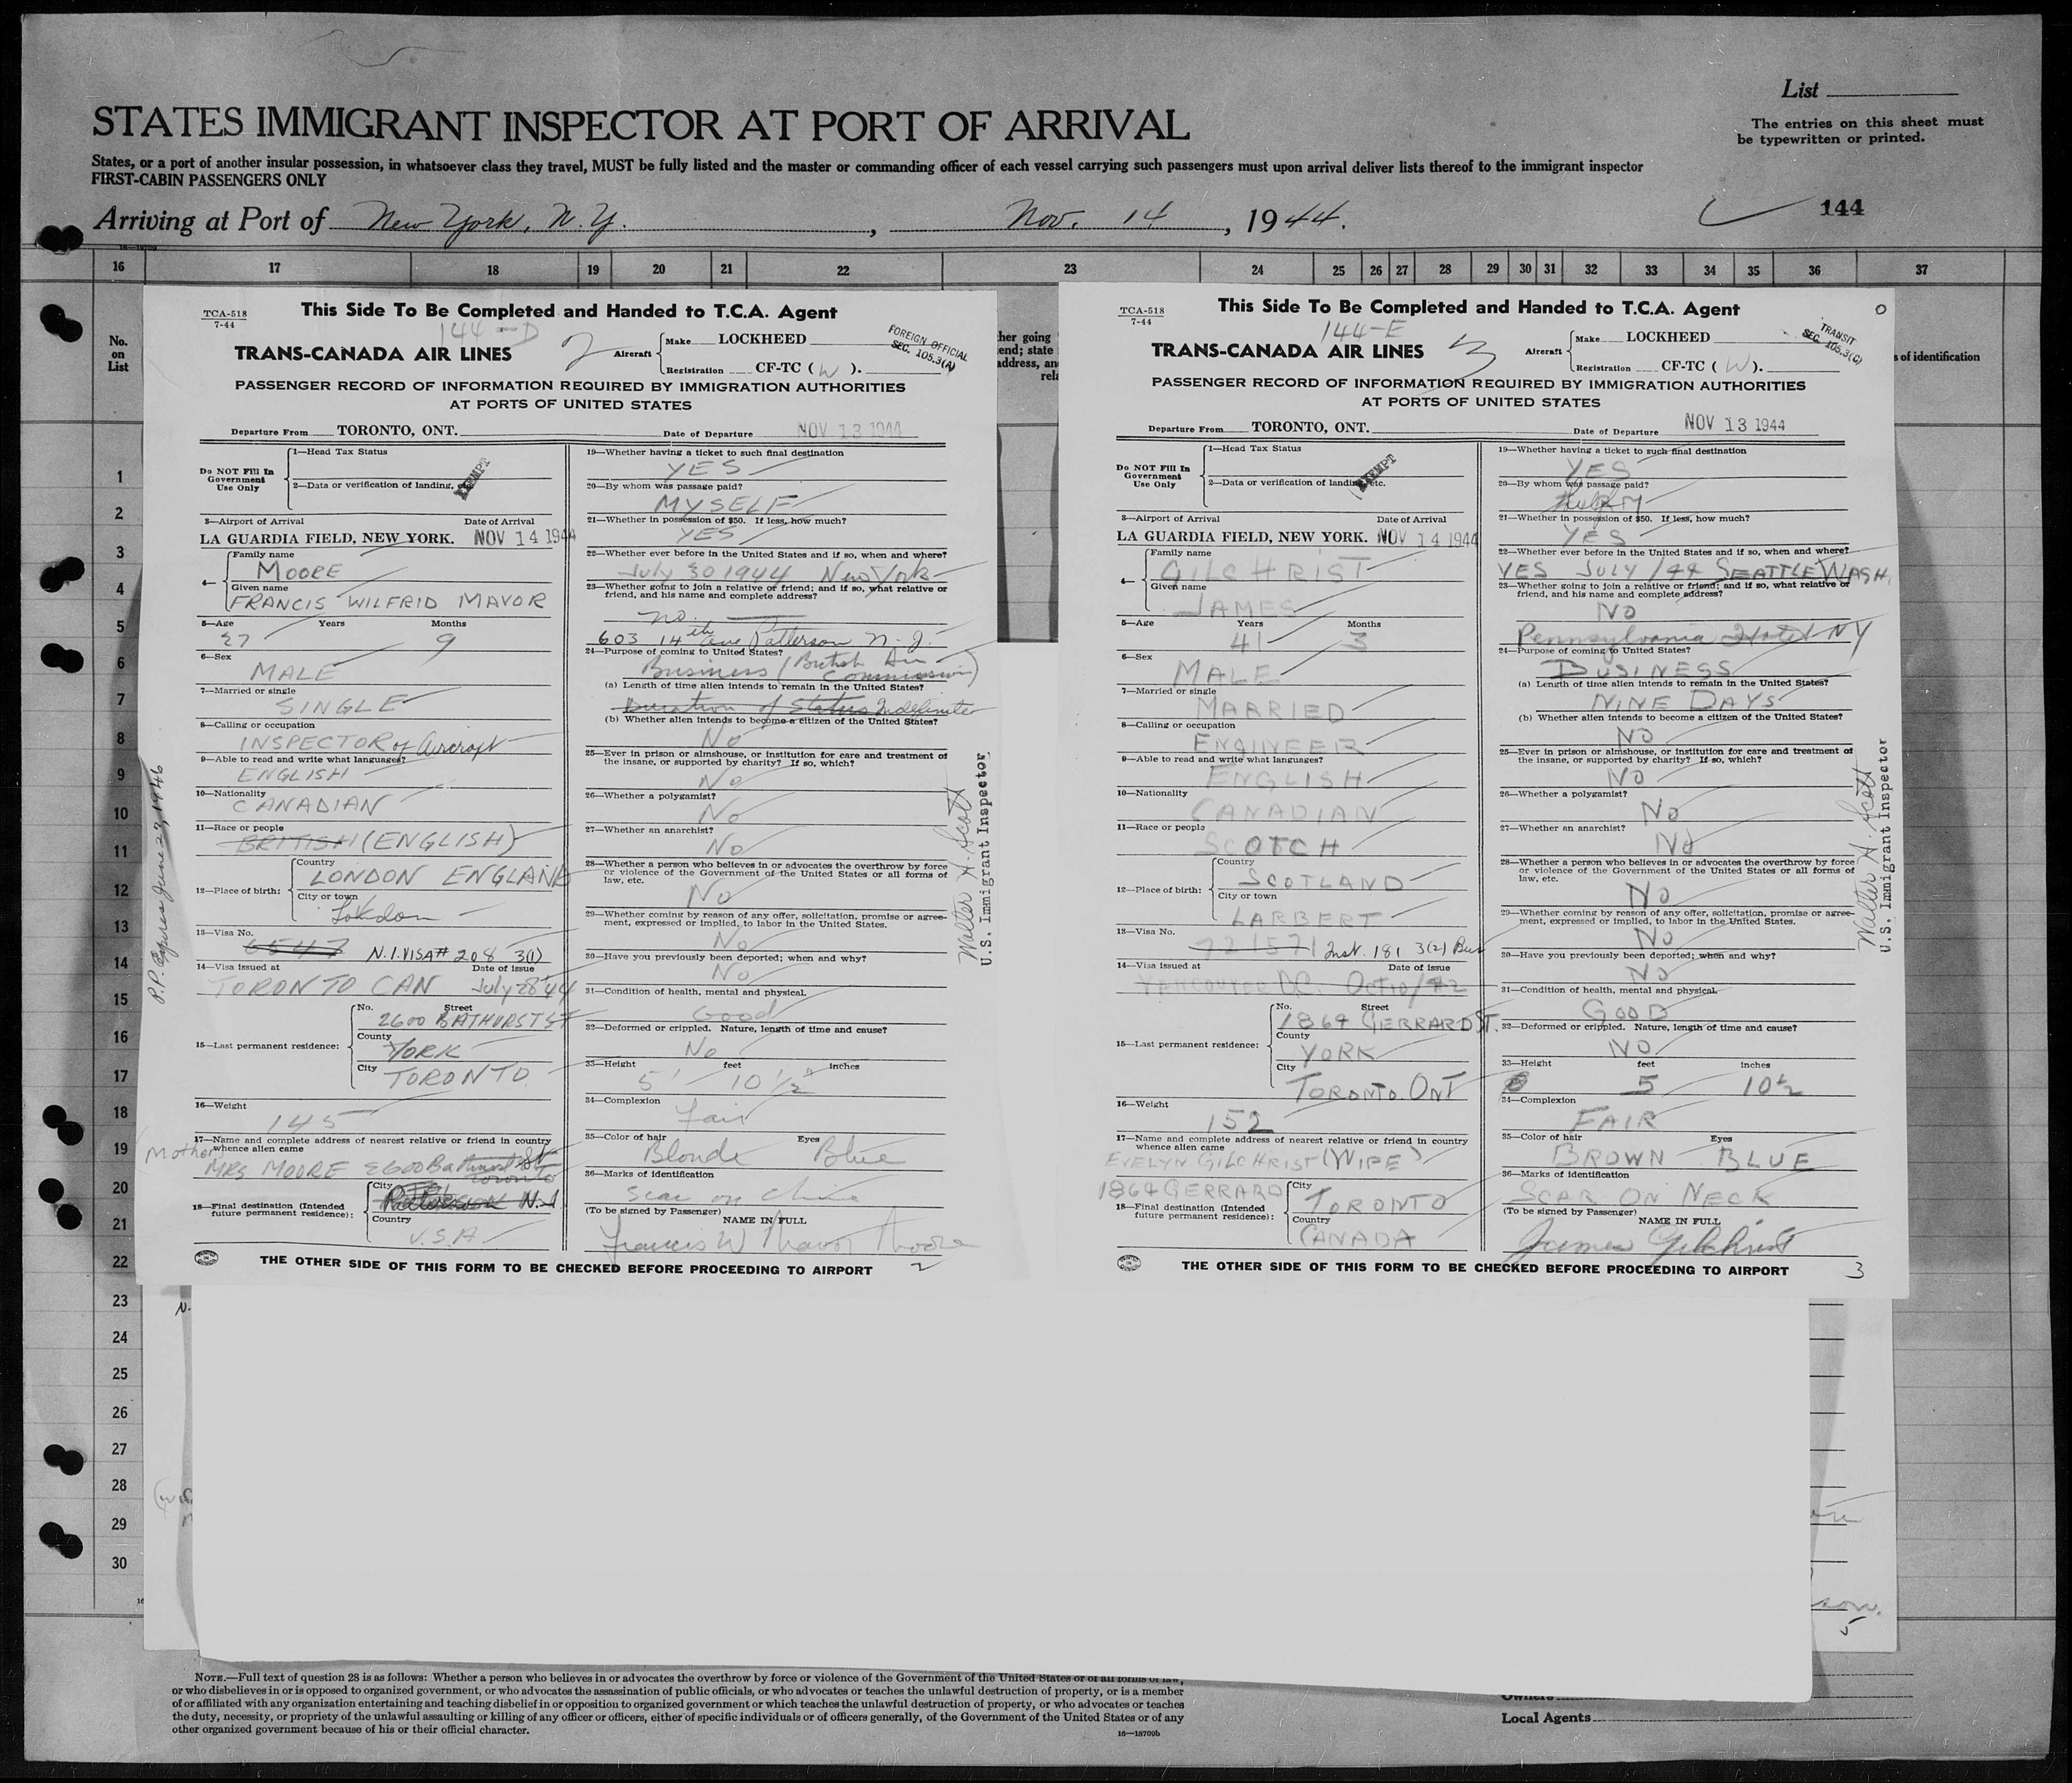 List
The entries on this sheet must
be typewritten or printed.
STATES IMMIGRANT INSPECTOR AT PORT OF ARRIVAL
States, or a port of another insular possession, in whatsoever class they travel, MUST be fully listed and the master or commanding officer of each vessel carrying such passengers must upon arrival deliver lists thereof to the immigrant inspector
FIRST-CABIN PASSENGERS ONLY
Arriving at Port of New York, N.Y., Nov. 14, 1944.
144
16 17 18 19 20 21 22 23 24 25 26 27 28 29 30 31 32 33 34 35 36 37
No.
on
List
s of identification
1
2
3
4
5
6
7
8
9
10
11
12
13
14
15
16
17
18
19
20
21
22
23
24
25
26
27
28
29
30
TCA-518
7-44
This Side To Be Completed and Handed to T.C.A. Agent
144-D
TRANS-CANADA AIR LINES
2
Aircraft
Make LOCKHEED
Registration CF-TC (W).
FOREIGN OFFICIAL
SEC. 105.3(A)
PASSENGER RECORD OF INFORMATION REQUIRED BY IMMIGRATION AUTHORITIES
AT PORTS OF UNITED STATES
Departure From TORONTO, ONT. Date of Departure NOV 13 1944
Do NOT Fill In
Government
Use Only
1—Head Tax Status
2—Data or verification of landing,
EXEMPT
3—Airport of Arrival Date of Arrival
LA GUARDIA FIELD, NEW YORK. NOV 14 1944
4—
Family name
MOORE
Given name
FRANCIS WILFRID MAVOR
5—Age Years Months
27 9
6—Sex
MALE
7—Married or single
SINGLE
8—Calling or occupation
INSPECTOR of Aircraft
9—Able to read and write what languages?
ENGLISH
10—Nationality
CANADIAN
11—Race or people
BRITISH (ENGLISH)
12—Place of birth:
Country
LONDON ENGLAND
City or town
London
13—Visa No.
6547 N.I. VISA # 208 3(1)
14—Visa issued at Date of issue
TORONTO CAN July 28 '44
15—Last permanent residence:
No. Street
2600 BATHURST ST
County
YORK
City
TORONTO
16—Weight
145
17—Name and complete address of nearest relative or friend in country
whence alien came
Mother
MRS MOORE 2600 Bathurst St
Toronto
18—Final destination (Intended
future permanent residence):
City
N.J.
Country
U.S.A.
P.P. Expires June 27, 1946
19—Whether having a ticket to such final destination
YES
20—By whom was passage paid?
MYSELF
21—Whether in possession of $50. If less, how much?
YES
22—Whether ever before in the United States and if so, when and where?
July 30 1944 New York
23—Whether going to join a relative or friend; and if so, what relative or
friend, and his name and complete address?
no.
603 14th Ave Patterson N.J.
24—Purpose of coming to United States?
Business (British Air
Commission)
(a) Length of time alien intends to remain in the United States?
Duration of Status Indefinite
(b) Whether alien intends to become a citizen of the United States?
No
25—Ever in prison or almshouse, or institution for care and treatment of
the insane, or supported by charity? If so, which?
No
26—Whether a polygamist?
No
27—Whether an anarchist?
No
28—Whether a person who believes in or advocates the overthrow by force
or violence of the Government of the United States or all forms of
law, etc.
No
29—Whether coming by reason of any offer, solicitation, promise or agree-
ment, expressed or implied, to labor in the United States.
No
30—Have you previously been deported; when and why?
No
31—Condition of health, mental and physical.
Good
32—Deformed or crippled. Nature, length of time and cause?
No
33—Height feet inches
5' 10 1/2"
34—Complexion
Fair
35—Color of hair Eyes
Blonde Blue
36—Marks of identification
Scar on
(To be signed by Passenger) NAME IN FULL
Francis W Mavor Moore
2
THE OTHER SIDE OF THIS FORM TO BE CHECKED BEFORE PROCEEDING TO AIRPORT
Walter A. Scott
U.S. Immigrant Inspector.
her going
end; state
address, an
rel
TCA-518
7-44
This Side To Be Completed and Handed to T.C.A. Agent
144-E
TRANS-CANADA AIR LINES
3
Aircraft
Make LOCKHEED
Registration CF-TC (W).
TRANSIT
SEC. 105.3(C)
PASSENGER RECORD OF INFORMATION REQUIRED BY IMMIGRATION AUTHORITIES
AT PORTS OF UNITED STATES
Departure From TORONTO, ONT. Date of Departure NOV 13 1944
Do NOT Fill In
Government
Use Only
1—Head Tax Status
2—Data or verification of landing, etc.
EXEMPT
3—Airport of Arrival Date of Arrival
LA GUARDIA FIELD, NEW YORK. NOV 14 1944
4—
Family name
GILCHRIST
Given name
JAMES
5—Age Years Months
41 3
6—Sex
MALE
7—Married or single
MARRIED
8—Calling or occupation
ENGINEER
9—Able to read and write what languages?
ENGLISH
10—Nationality
CANADIAN
11—Race or people
SCOTCH
12—Place of birth:
Country
SCOTLAND
City or town
LARBERT
13—Visa No.
721571 Inst. 181 3(2) Bus
14—Visa issued at Date of issue
VANCOUVER BC. Oct 10/42
15—Last permanent residence:
No. Street
1864 GERRARD ST.
County
YORK
City
TORONTO ONT
16—Weight
152
17—Name and complete address of nearest relative or friend in country
whence alien came
EVELYN GILCHRIST (WIFE)
1864 GERRARD
18—Final destination (Intended
future permanent residence):
City
TORONTO
Country
CANADA
19—Whether having a ticket to such final destination
YES
20—By whom was passage paid?
21—Whether in possession of $50. If less, how much?
YES
22—Whether ever before in the United States and if so, when and where?
YES JULY/44 SEATTLE WASH.
23—Whether going to join a relative or friend; and if so, what relative or
friend, and his name and complete address?
NO
Pennsylvania Hotel NY
24—Purpose of coming to United States?
BUSINESS
(a) Length of time alien intends to remain in the United States?
NINE DAYS
(b) Whether alien intends to become a citizen of the United States?
NO
25—Ever in prison or almshouse, or institution for care and treatment of
the insane, or supported by charity? If so, which?
NO
26—Whether a polygamist?
No
27—Whether an anarchist?
No
28—Whether a person who believes in or advocates the overthrow by force
or violence of the Government of the United States or all forms of
law, etc.
No
29—Whether coming by reason of any offer, solicitation, promise or agree-
ment, expressed or implied, to labor in the United States.
No
30—Have you previously been deported; when and why?
No
31—Condition of health, mental and physical.
GOOD
32—Deformed or crippled. Nature, length of time and cause?
NO
33—Height feet inches
5 10 1/2
34—Complexion
FAIR
35—Color of hair Eyes
BROWN BLUE
36—Marks of identification
SCAR ON NECK
(To be signed by Passenger) NAME IN FULL
James Gilchrist
THE OTHER SIDE OF THIS FORM TO BE CHECKED BEFORE PROCEEDING TO AIRPORT
3
Walter A. Scott
U.S. Immigrant Inspector
NOTE.—Full text of question 28 is as follows: Whether a person who believes in or advocates the overthrow by force or violence of the Government of the United States or of all forms of law,
or who disbelieves in or is opposed to organized government, or who advocates the assassination of public officials, or who advocates or teaches the unlawful destruction of property, or is a member
of or affiliated with any organization entertaining and teaching disbelief in or opposition to organized government or which teaches the unlawful destruction of property, or who advocates or teaches
the duty, necessity, or propriety of the unlawful assaulting or killing of any officer or officers, either of specific individuals or of officers generally, of the Government of the United States or of any
other organized government because of his or their official character.
16—18709b
Owners
Local Agents